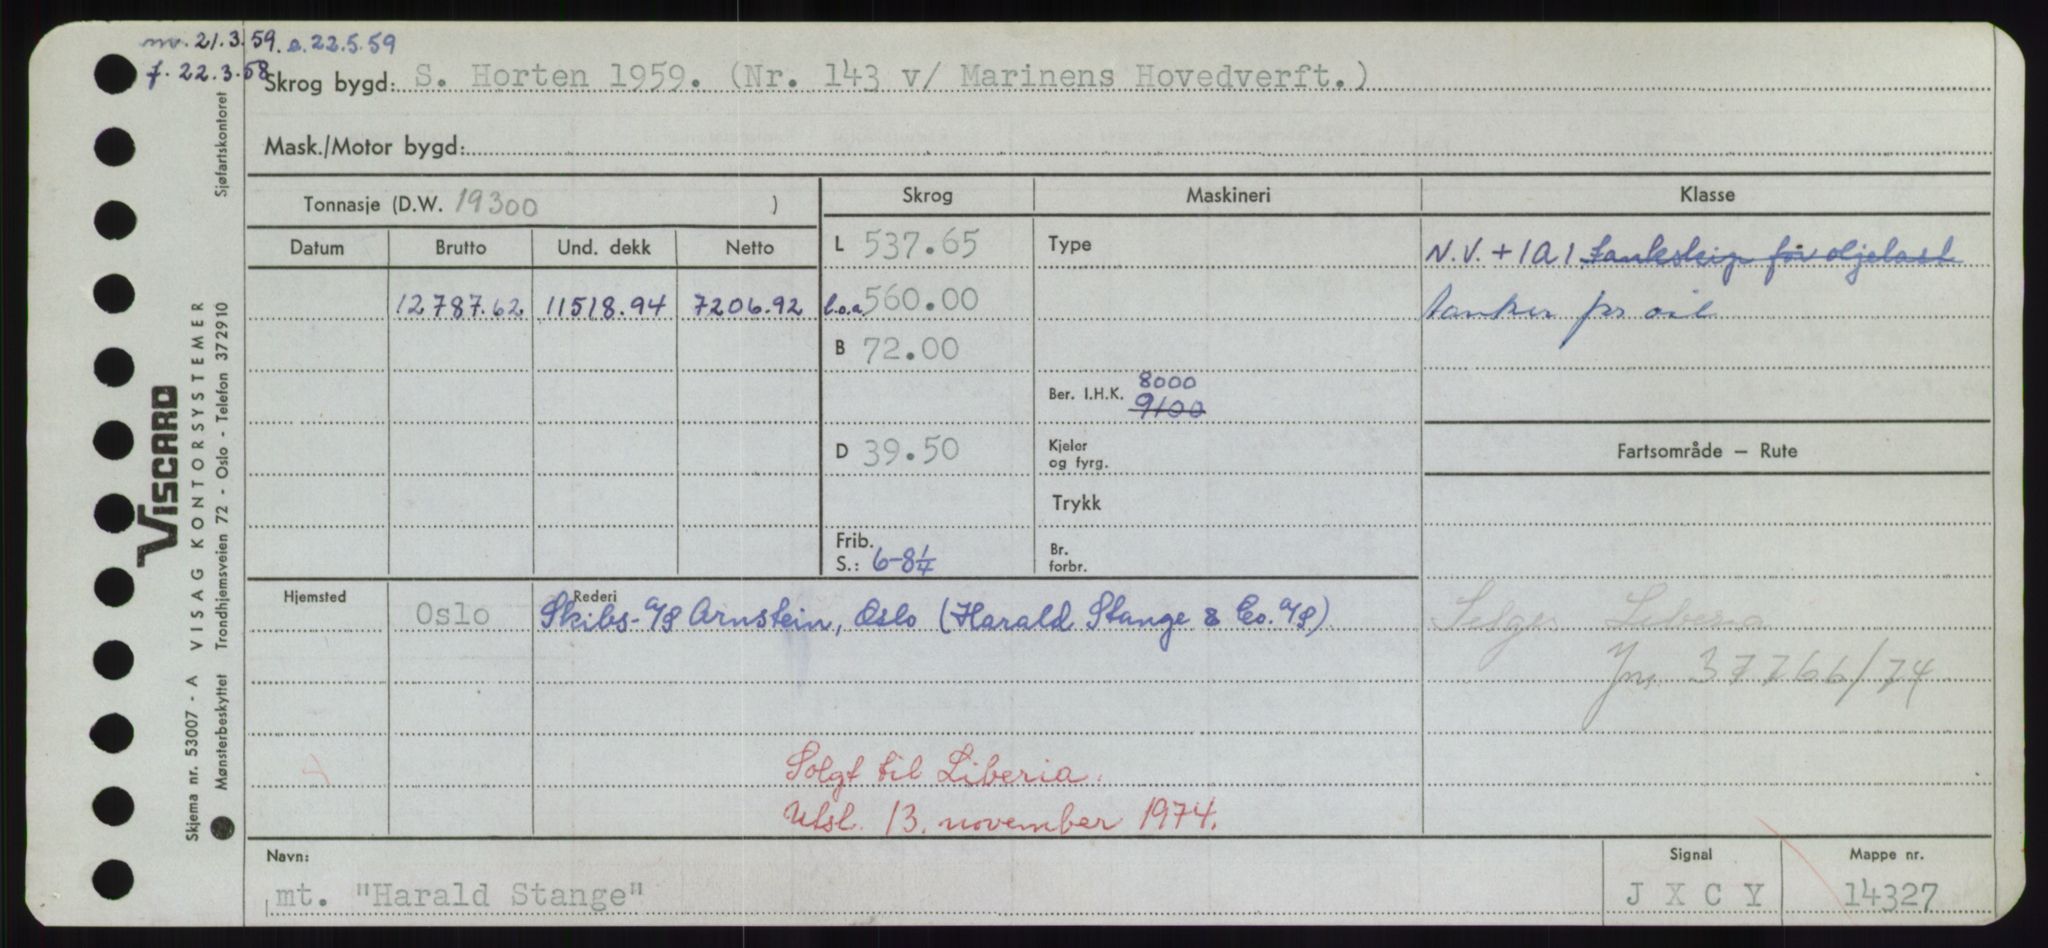 nv. 21.3.59. e. 22.5.59
f. 22.3.58
Skrog bygd: S. Horten 1959. (Nr. 143 v/ Marinens Hovedverft.)
Mask./Motor bygd:
Tonnasje (D.W. 19300 )
Skrog
Maskineri
Klasse
Datum
Brutto
Und. dekk
Netto
L 537.65
Type
N.V. + 1A1 Tankskip för oljelast
12787.62
11518.94
7206.92
l.o.a. 560.00
tanker for oil
B 72.00
8000
Ber. I.H.K. 9100
D 39.50
Kjeler
og fyrg.
Fartsområde – Rute
Trykk
Frib.
S.: 6-8 1/4
Br.
forbr.
Hjemsted
Oslo
Rederi
Skibs-A/S Arnstein, Oslo (Harald Stange & Co. A/S)
Selges Liberia
Jnr. 37766/74
Solgt til Liberia.
Utsl. 13. november 1974.
Navn:
mt. "Harald Stange"
Signal
J X C Y
Mappe nr.
14327
VISCARD
Skjema nr. 53007 - A VISAG KONTORSYSTEMER
Mønsterbeskyttet Trondhjemsveien 72 - Oslo - Telefon 372910 Sjøfartskontoret